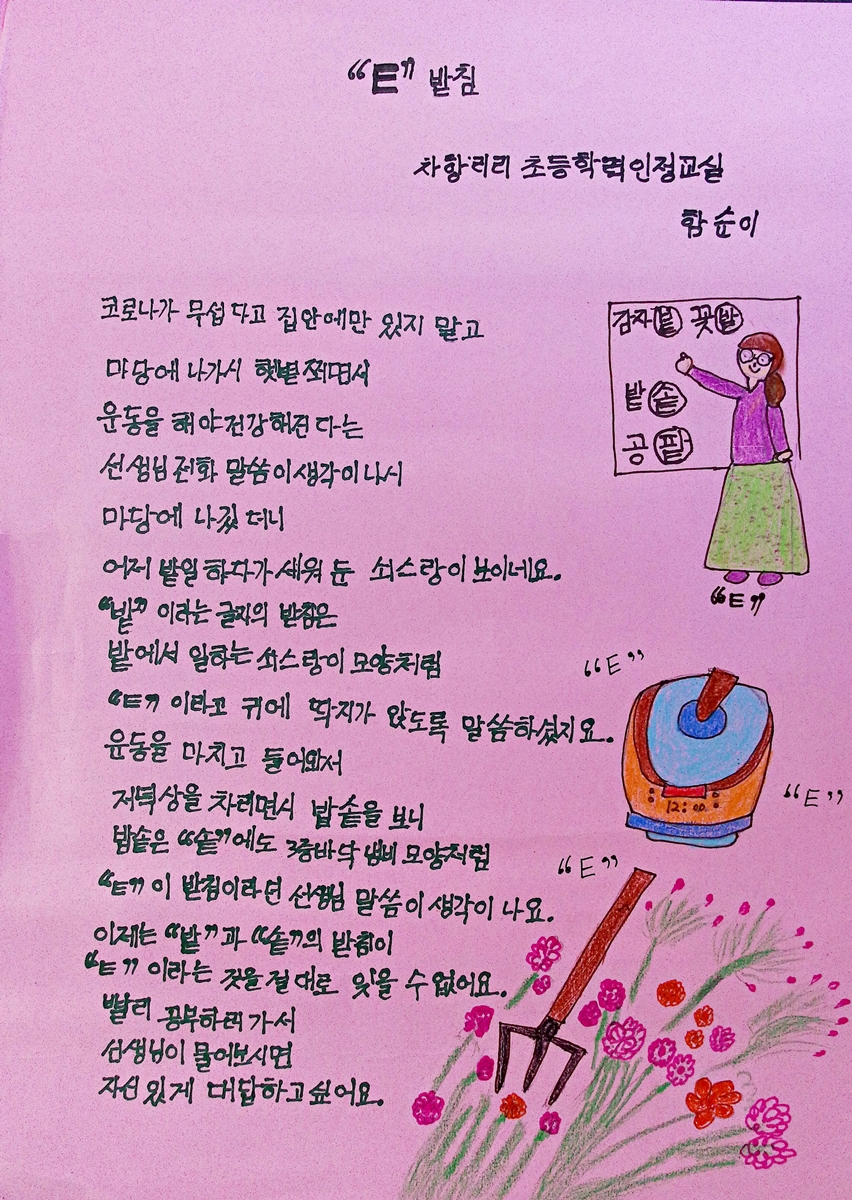 “ㅌ” 받침
차항2리 초등학력인정교실
함순이
코로나가 무섭다고 집안에만 있지 말고
마당에 나가서 햇볕 쬐면서
운동을 해야 건강해진다는
선생님 전화 말씀이 생각이 나서
마당에 나갔더니
어제 밭일 하다가 세워 둔 쇠스랑이 보이네요.
“밭” 이라는 글자의 받침은
밭에서 일하는 쇠스랑이 모양처럼
“ㅌ” 이라고 귀에 딱지가 앉도록 말씀하셨지요.
운동을 마치고 들어와서
저녁상을 차리면서 밥솥을 보니
밥솥은 “솥”에도 3층바닥 냄비 모양처럼
“ㅌ”이 받침이라던 선생님 말씀이 생각이 나요.
이제는 “밭”과 “솥”의 받침이
“ㅌ” 이라는 것을 절대로 잊을 수 없어요.
빨리 공부하러 가서
선생님이 물어보시면
자신 있게 대답하고 싶어요.
감자밭 꽃밭
밭솥
공팥
“ㅌ”
“ㅌ”
12:00
“ㅌ”
“ㅌ”